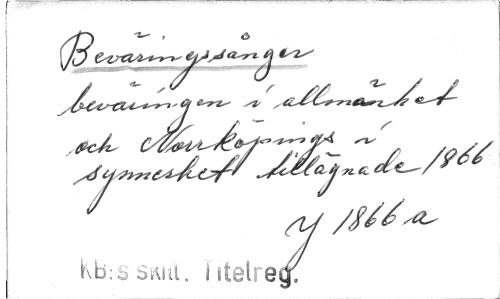 Beväringssånger
beväringen i allmänhet
och Norrköpings i
synnerhet tillägnade 1866
Y 1866 a
KB:s skill. Titelreg.